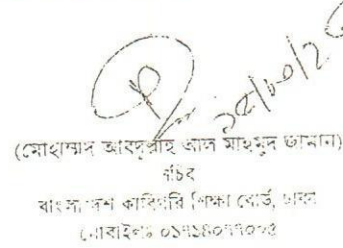 (মোহাম্মদ আবদুল্লাহ আল মাহমুদ জামান)
সচিব
বাংলাদেশ কারিগরি শিক্ষা বোর্ড, ঢাকা
মোবাইলঃ